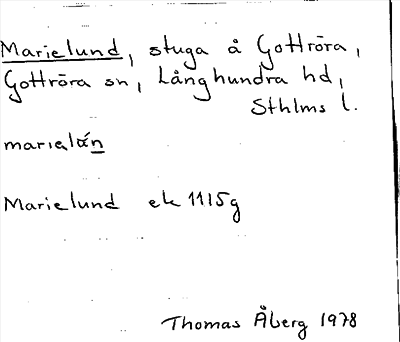 Marielund, stuga å Gottröra,
Gottröra sn, Långhundra hd,
Sthlms l.
marialán
Marielund ek 11I5g
Thomas Åberg 1978